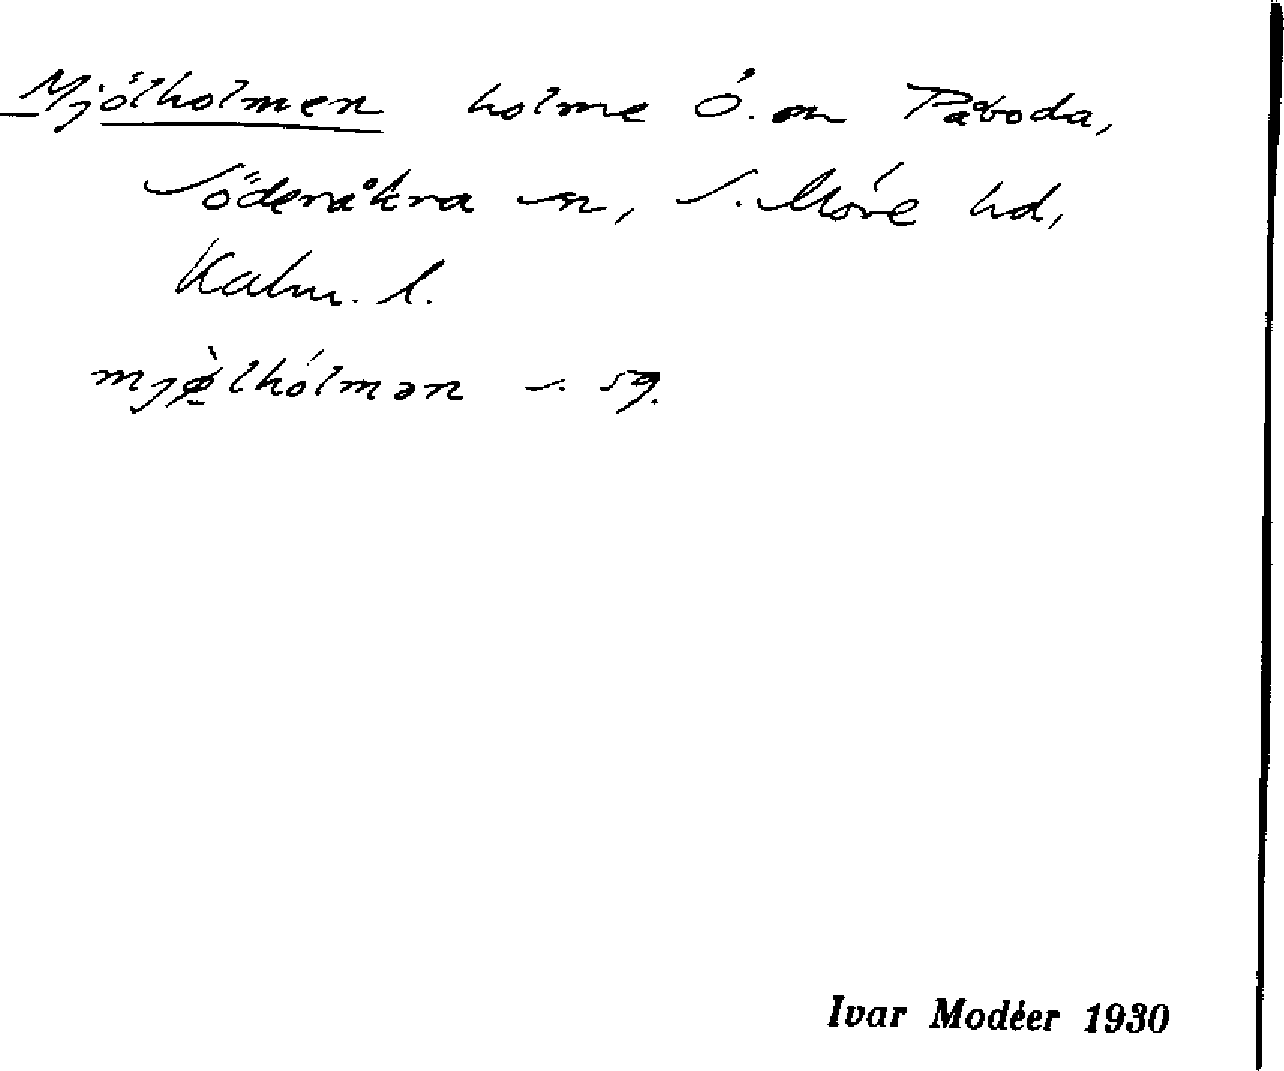 Mjölholmen holme Ö. om Påboda,
Söderåkra sn, S. Möre hd,
Kalm. l.
mjø̀lhólmən s. sg.
Ivar Modéer 1930